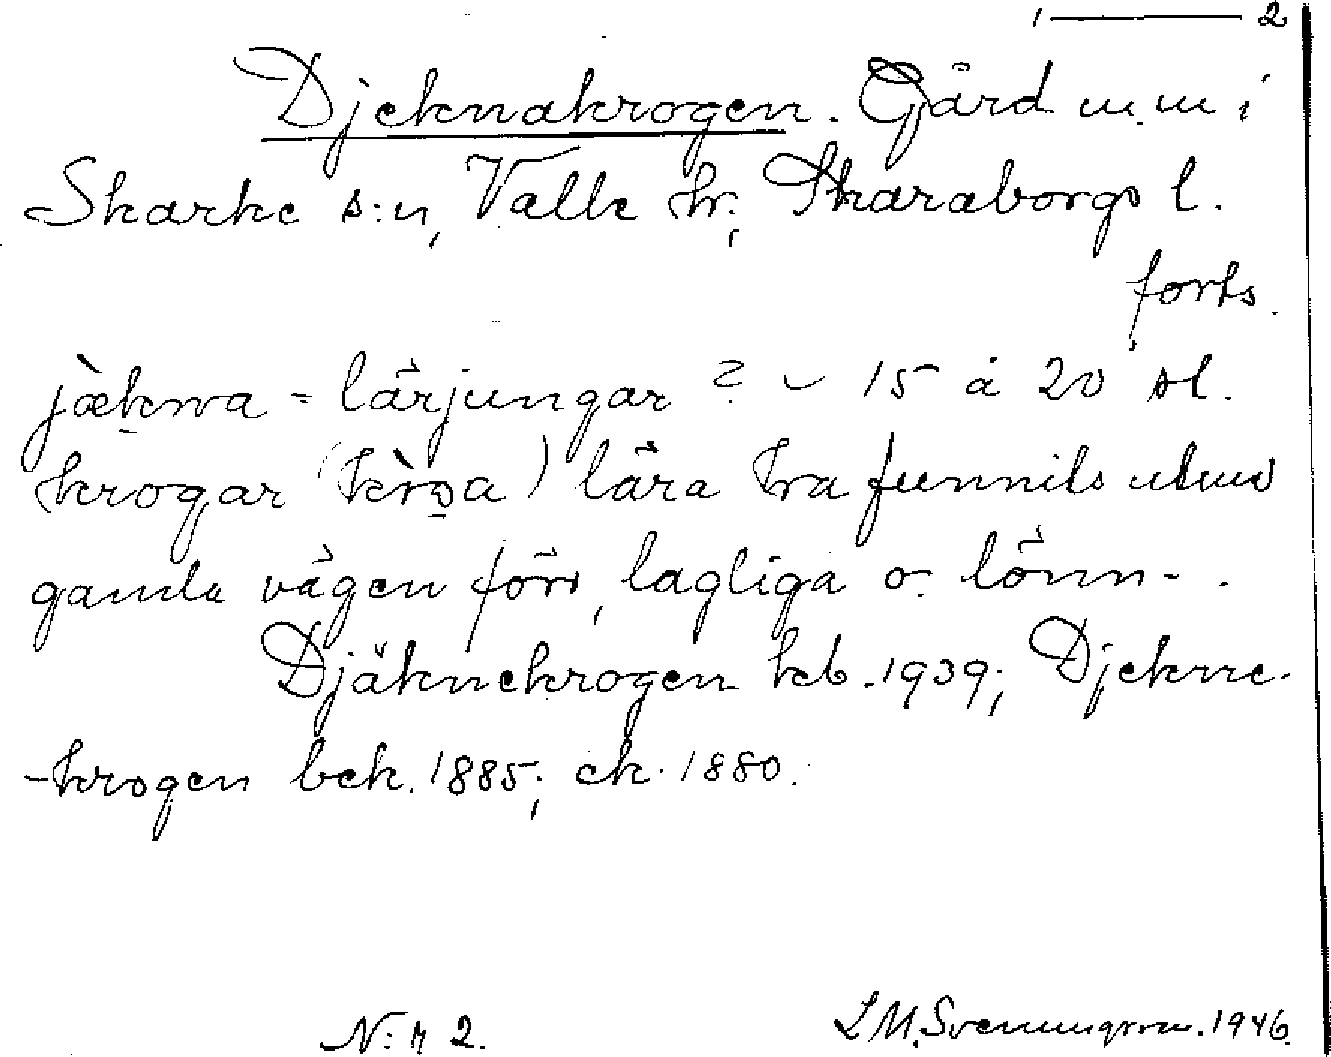 1 — 2
Djeknakrogen. Gård m.m i
Skarke s:n, Valle hr; Skaraborgs l.
forts.
jàkna = lärjungar? 15 à 20 st.
krogar (kròa) lära ha funnits utmed
gamla vägen förr, lagliga o. lönn-.
Djäknekrogen hcb. 1939; Djekne-
-krogen bek. 1885; ek. 1880.
N:r 2. L M. Svenungsson. 1946.